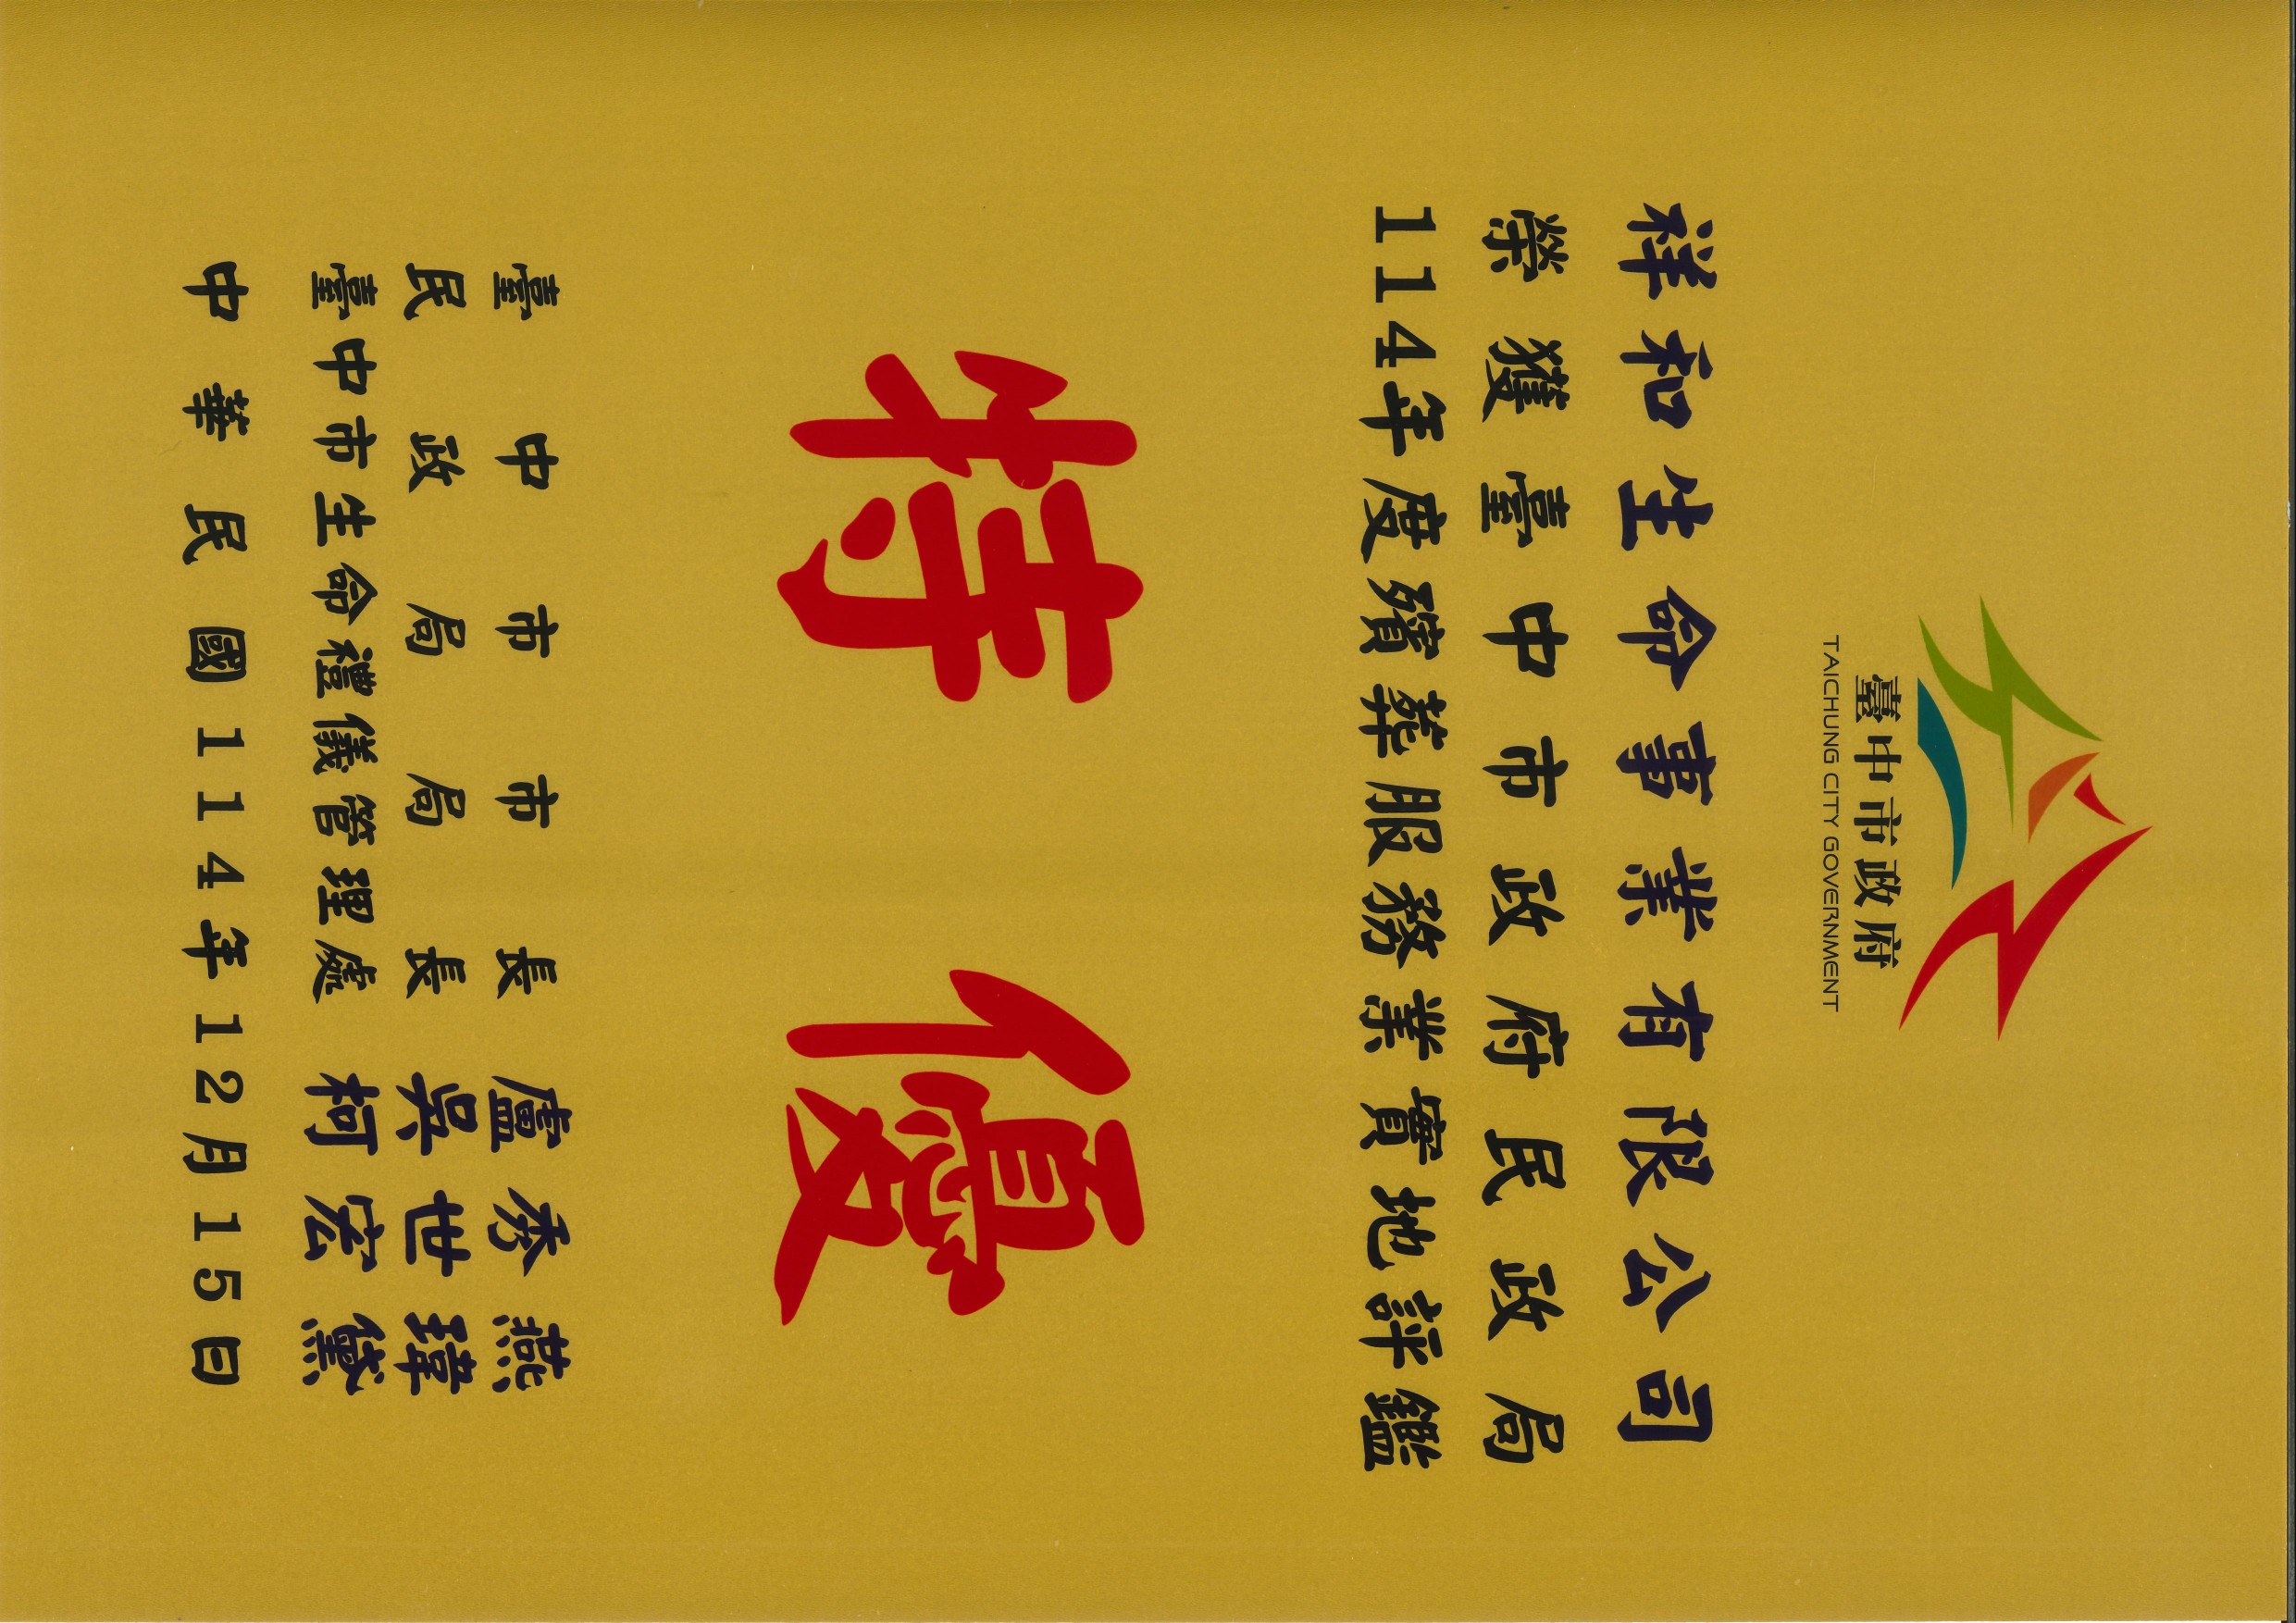 臺中市政府
TAICHUNG CITY GOVERNMENT
祥和生命事業有限公司
榮獲臺中市政府民政局
114年度殯葬服務業實地評鑑
特優
臺中市市長 盧秀燕
民政局局長 吳世瑋
臺中市生命禮儀管理處 柯宏黛
中華民國114年12月15日